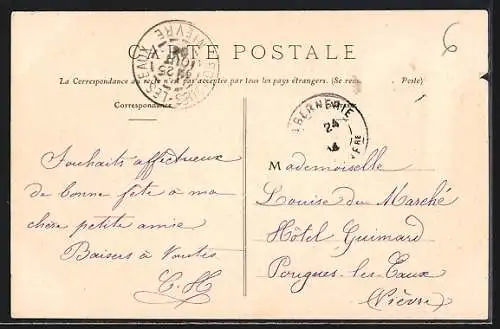 CARTE POSTALE
La Correspondance au recto n'est pas acceptée par tous les pays étrangers. (Se Poste)
Correspondance
POUGUES-LES-EAUX
NIÈVRE
25
AOUT
BERNERIE
24
M
Souhaits affectueux
de bonne fête à ma
chère petite amie
Baisers à toutes
C. H
Mademoiselle
Louise du Marché
Hôtel Guimard
Pougues-les-Eaux
(Nièvre)
6